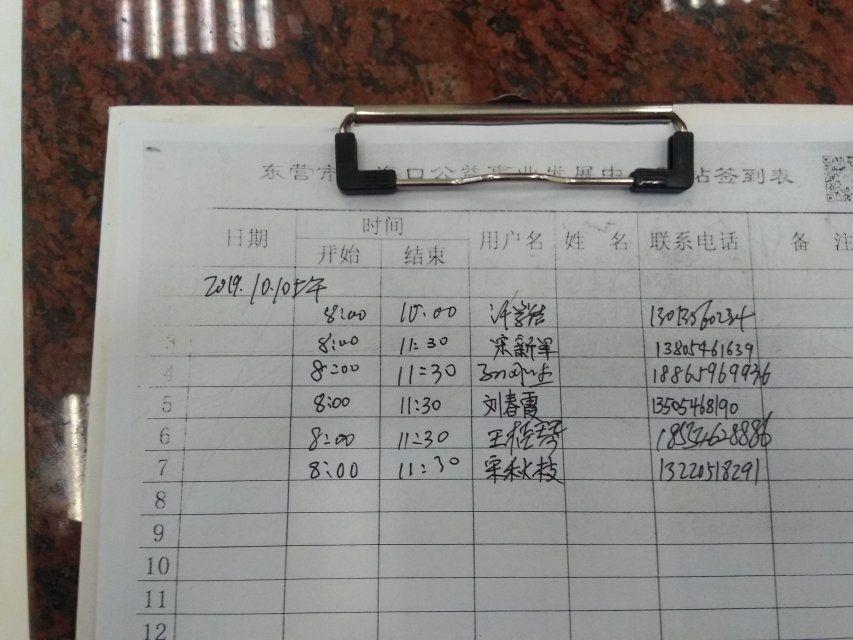 东营市 海口公益事业发展中 站签到表
日期 时间 用户名 姓名 联系电话 备注
开始 结束
2019.10.10上午
8:00 10:00 13013560234
3 8:00 11:30 宋新军 13805461639
4 8:00 11:30 18865969936
5 8:00 11:30 刘春霞 13505468190
6 8:00 11:30 18554628886
7 8:00 11:30 宋秋枝 13220518291
8
9
10
11
12